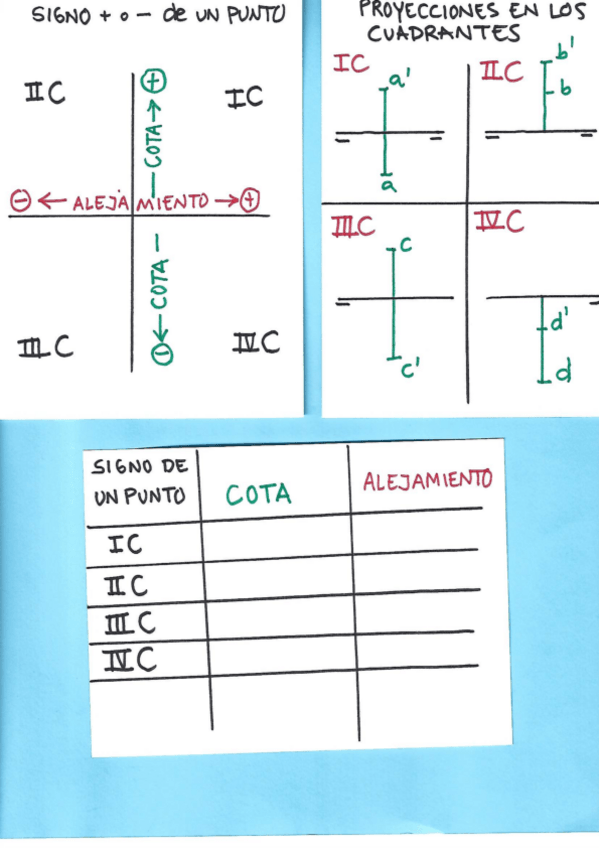 SIGNO + o - de UN PUNTO
II C
I C
+
COTA
- ← ALEJAMIENTO → +
COTA
-
III C
IV C
PROYECCIONES EN LOS
CUADRANTES
I C
a'
a
II C
b'
b
III C
c
c'
IV C
d'
d
SIGNO DE
UN PUNTO
COTA
ALEJAMIENTO
I C
II C
III C
IV C